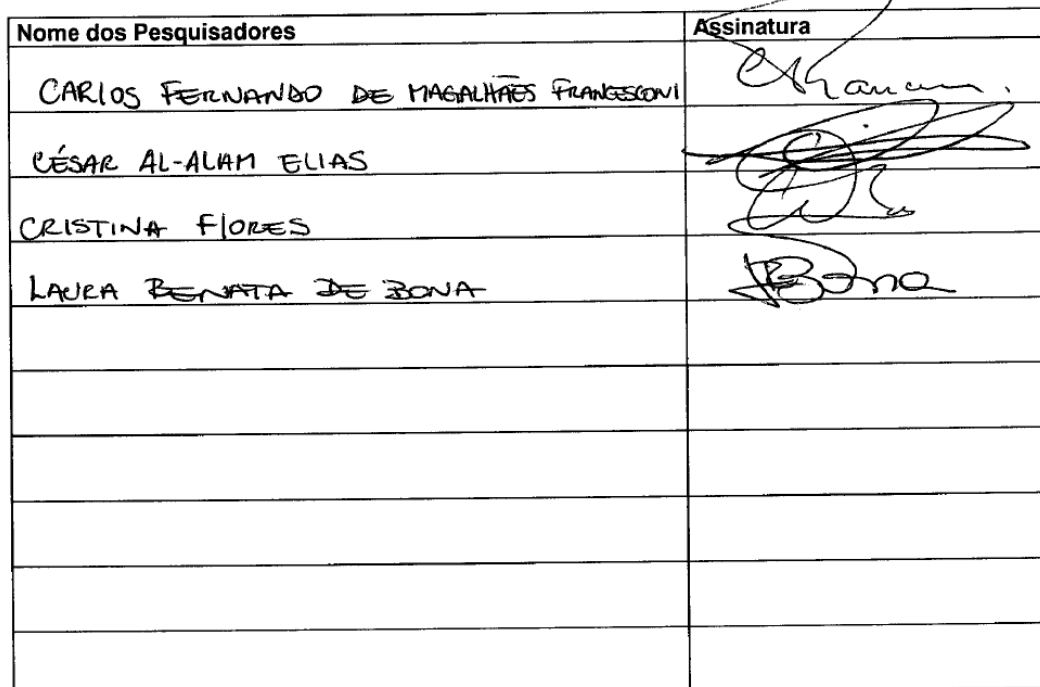 Nome dos Pesquisadores Assinatura
CARLOS FERNANDO DE MAGALHÃES FRANCESCONI
CÉSAR AL-ALAM ELIAS
CRISTINA FLORES
LAURA RENATA DE BONA Bona